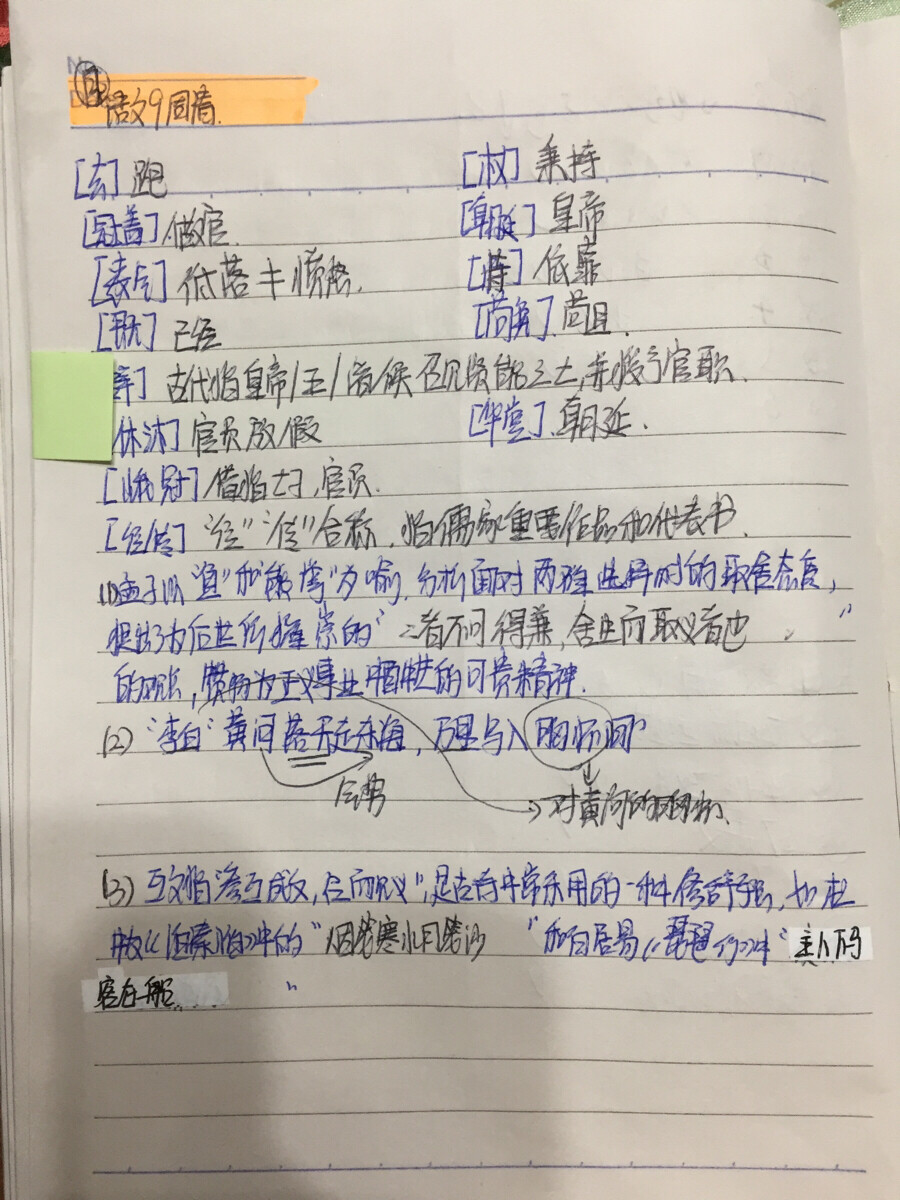 [去] 跑 [权] 秉持
[冠盖] 做官 [朝廷] 皇帝
低落+愤怒 [恃] 依靠
[既] 已经 苟且
古代指皇帝/王/诸侯召见贤能之士,并授予官职.
休沐] 官员放假 [华堂] 朝延.
[峨冠] 借指士子,官员.
[经传] "经""传"合称,指儒家重要作品和代表书.
(1)孟子以"鱼"和"熊掌"为喻,分析面对两难选择时的取舍态度,
提出了为后世所推崇的"二者不可得兼,舍生而取义者也"
的观点,赞扬为正义事业牺牲的可贵精神.
(2)"李白"黄河落天走东海,万里写入胸怀间"
气势 对黄河的
(3) 互文指"参互成文,合而见义",是古诗中常采用的一种修辞手法,如杜
牧《泊秦淮》中的"烟笼寒水月笼沙 "和白居易《琵琶行》中"主人下马
客在船 "